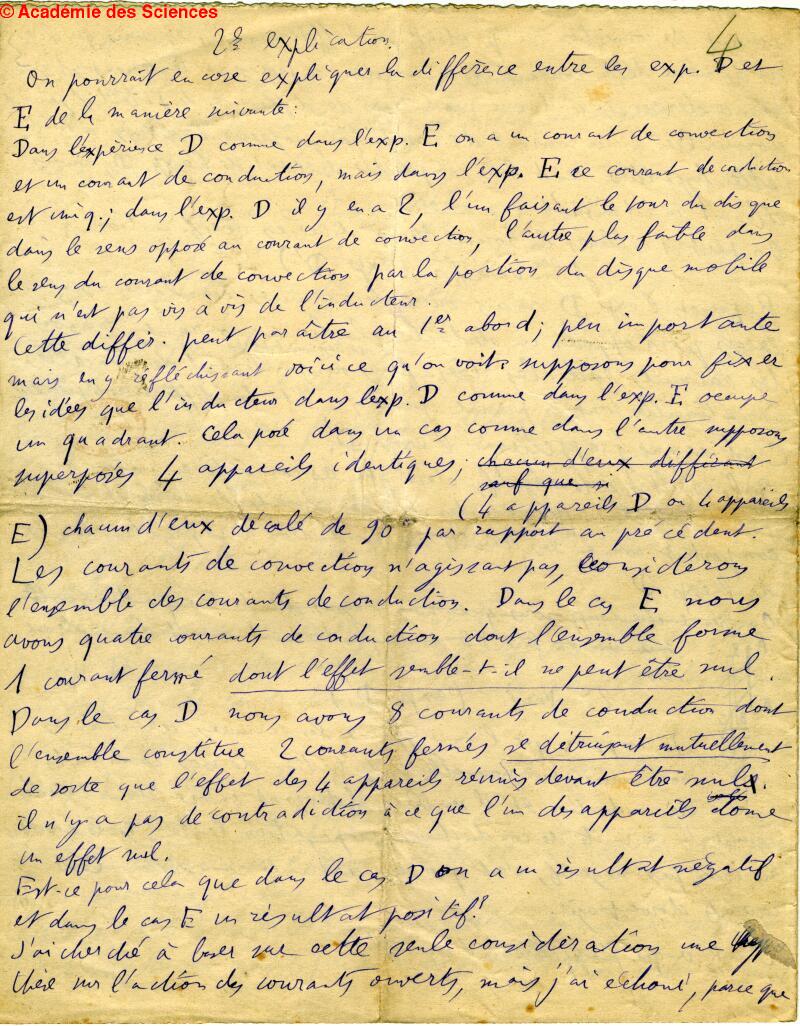 © Académie des Sciences
4
2e explication.
On pourrait encore expliquer la différence entre les exp. D et
E de la manière suivante:
Dans l'expérience D comme dans l'exp. E on a un courant de convection
et un courant de conduction, mais dans l'exp. E ce courant de conduction
est uniq.; dans l'exp. D il y en a 2, l'un faisant le tour du disque
dans le sens opposé au courant de convection, l'autre plus faible dans
le sens du courant de convection par la portion du disque mobile
qui n'est pas vis à vis de l'inducteur.
Cette différ. peut paraître au 1er abord; peu importante
mais en y réfléchissant voici ce qu'on voit: supposons pour fixer
les idées que l'inducteur dans l'exp. D comme dans l'exp. E occupe
un quadrant. Cela posé dans un cas comme dans l'autre supposons
superposés 4 appareils identiques; chacun d'eux différant
sauf que si
(4 appareils D ou 4 appareils
E) chacun d'eux décalé de 90° par rapport au précédent.
Les courants de convection n'agissant pas, considérons
l'ensemble des courants de conduction. Dans le cas E nous
avons quatre courants de conduction dont l'ensemble forme
1 courant fermé dont l'effet semble-t-il ne peut être nul.
Dans le cas D nous avons 8 courants de conduction dont
l'ensemble constitue 2 courants fermés se détruisant mutuellement
de sorte que l'effet des 4 appareils réunis devant être nul
il n'y a pas de contradiction à ce que l'un des appareils donne
un effet nul.
Est-ce pour cela que dans le cas D on a un résultat négatif
et dans le cas E un résultat positif?
J'ai cherché à baser sur cette seule considération une
thèse sur l'action des courants ouverts, mais j'ai échoué, parce que